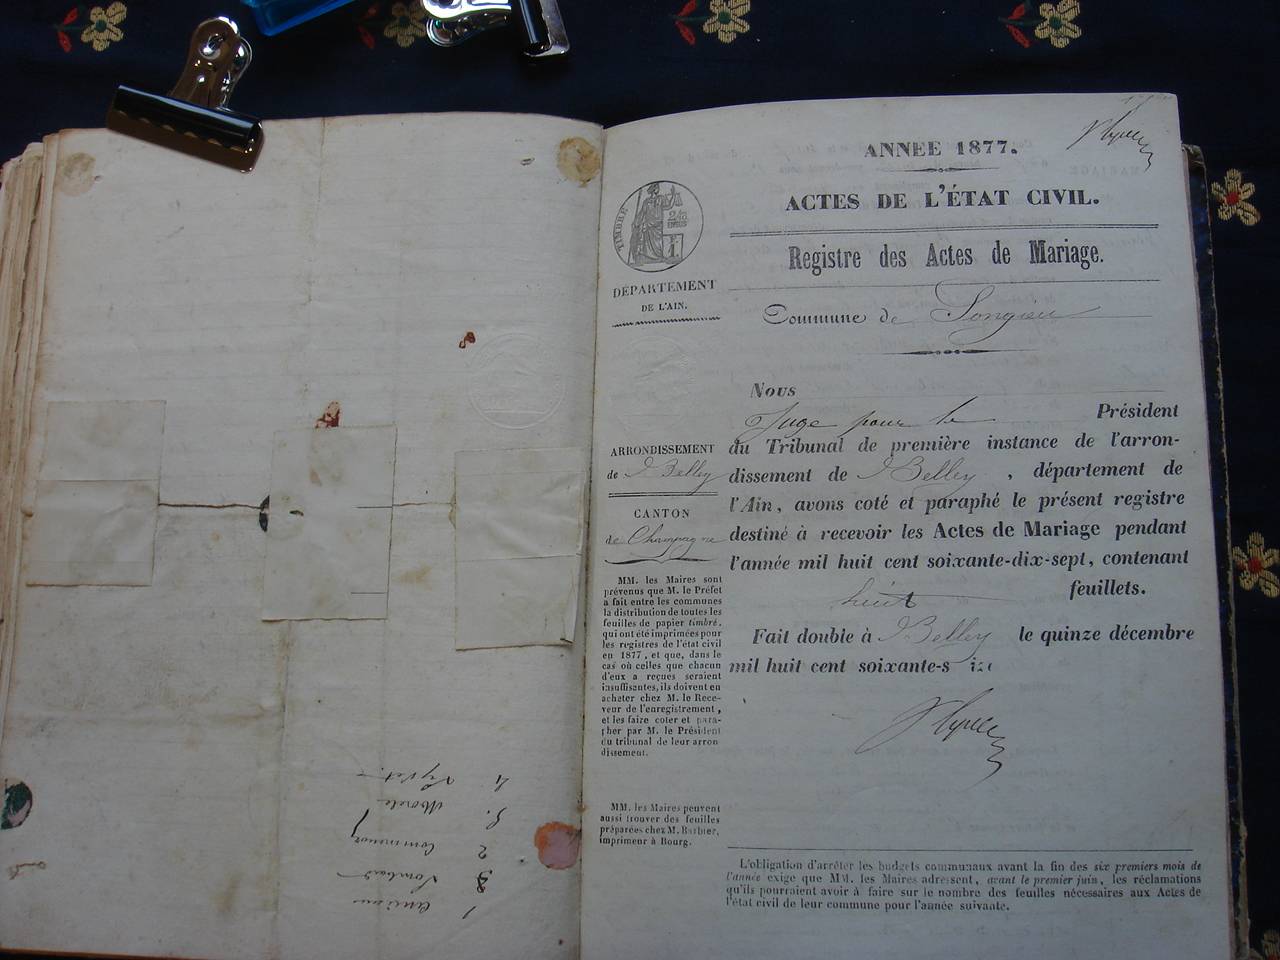 ANNEE 1877.
ACTES DE L'ÉTAT CIVIL.
Registre des Actes de Mariage.
Commune de Songieu
TIMBRE
DÉPARTEMENT
DE L'AIN.
ARRONDISSEMENT
de Belley
CANTON
de Champagne
MM. les Maires sont
prévenus que M. le Préfet
a fait entre les communes
la distribution de toutes les
feuilles de papier timbré,
qui ont été imprimées pour
les registres de l'état civil
en 1877, et que, dans le
cas où celles que chacun
d'eux a reçues seraient
insuffisantes, ils doivent en
acheter chez M. le Rece-
veur de l'enregistrement,
et les faire coter et para-
pher par M. le Président
du tribunal de leur arron
dissement.
MM. les Maires peuvent
aussi trouver des feuilles
préparées chez M. Barbier,
imprimeur à Bourg.
Nous
Juge pour le Président
du Tribunal de première instance de l'arron-
dissement de Belley, département de
l'Ain, avons coté et paraphé le présent registre
destiné à recevoir les Actes de Mariage pendant
l'année mil huit cent soixante-dix-sept, contenant
huit feuillets.
Fait double à Belley le quinze décembre
mil huit cent soixante-s ize
L'obligation d'arrêter les budgets communaux avant la fin des six premiers mois de
l'année exige que MM. les Maires adressent, avant le premier juin, les réclamations
qu'ils pourraient avoir à faire sur le nombre des feuilles nécessaires aux Actes de
l'état civil de leur commune pour l'année suivante.